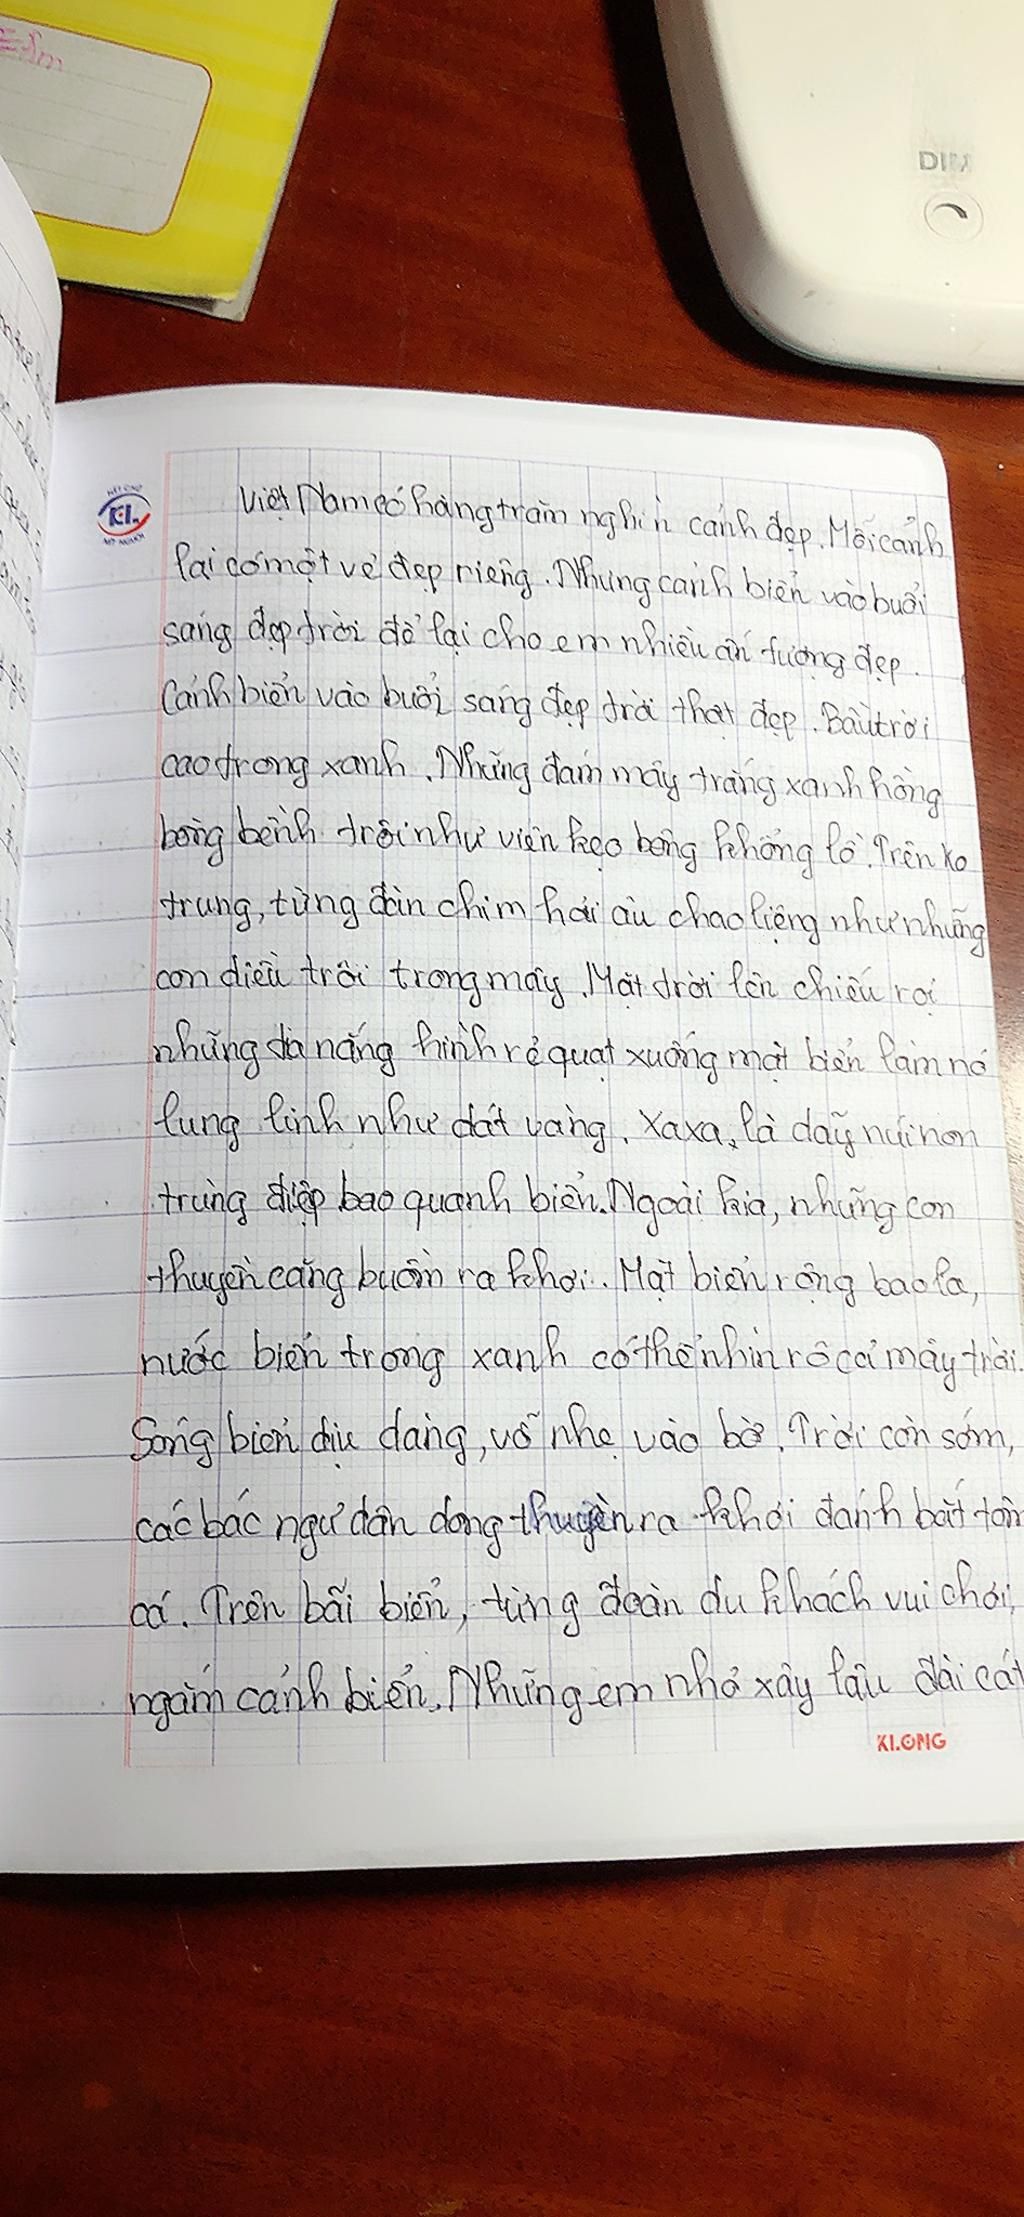 =8m
DIM
NÉT CHỮ
KL
NẾT NGƯỜI
Việt Nam có hàng trăm nghìn cảnh đẹp. Mỗi cảnh
lại có một vẻ đẹp riêng. Nhưng cảnh biển vào buổi
sáng đẹp trời để lại cho em nhiều ấn tượng đẹp.
Cảnh biển vào buổi sáng đẹp trời thật đẹp. Bầu trời
cao trong xanh. Những đám mây trắng xanh hồng
bồng bềnh trôi như viên kẹo bông khổng lồ. Trên ko
trung, từng đàn chim hải âu chao liệng như những
con diều trôi trong mây. Mặt trời lên chiếu rọi
những tia nắng hình rẻ quạt xuống mặt biển làm nó
lung linh như dát vàng. Xa xa, là dãy núi non
trùng điệp bao quanh biển. Ngoài kia, những con
thuyền căng buồm ra khơi. Mặt biển rộng bao la,
nước biển trong xanh có thể nhìn rõ cả mây trời.
Sóng biển dịu dàng, vỗ nhẹ vào bờ. Trời còn sớm,
các bác ngư dân dong thuyền ra khơi đánh bắt tôm
cá. Trên bãi biển, từng đoàn du khách vui chơi,
ngắm cảnh biển. Những em nhỏ xây lâu đài cát
KLONG